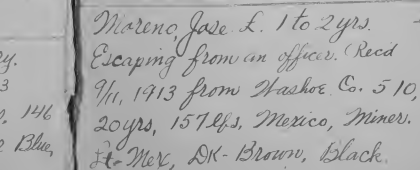 Moreno, Jose £. 1 to 2 yrs.
Escaping from an officer. (Recd
9/11, 1913 from Washoe Co. 5 10,
20 yrs, 157 lbs, Mexico, Miner.
Lt- Mex, DK- Brown, Black.
y.
3
146
Blue,